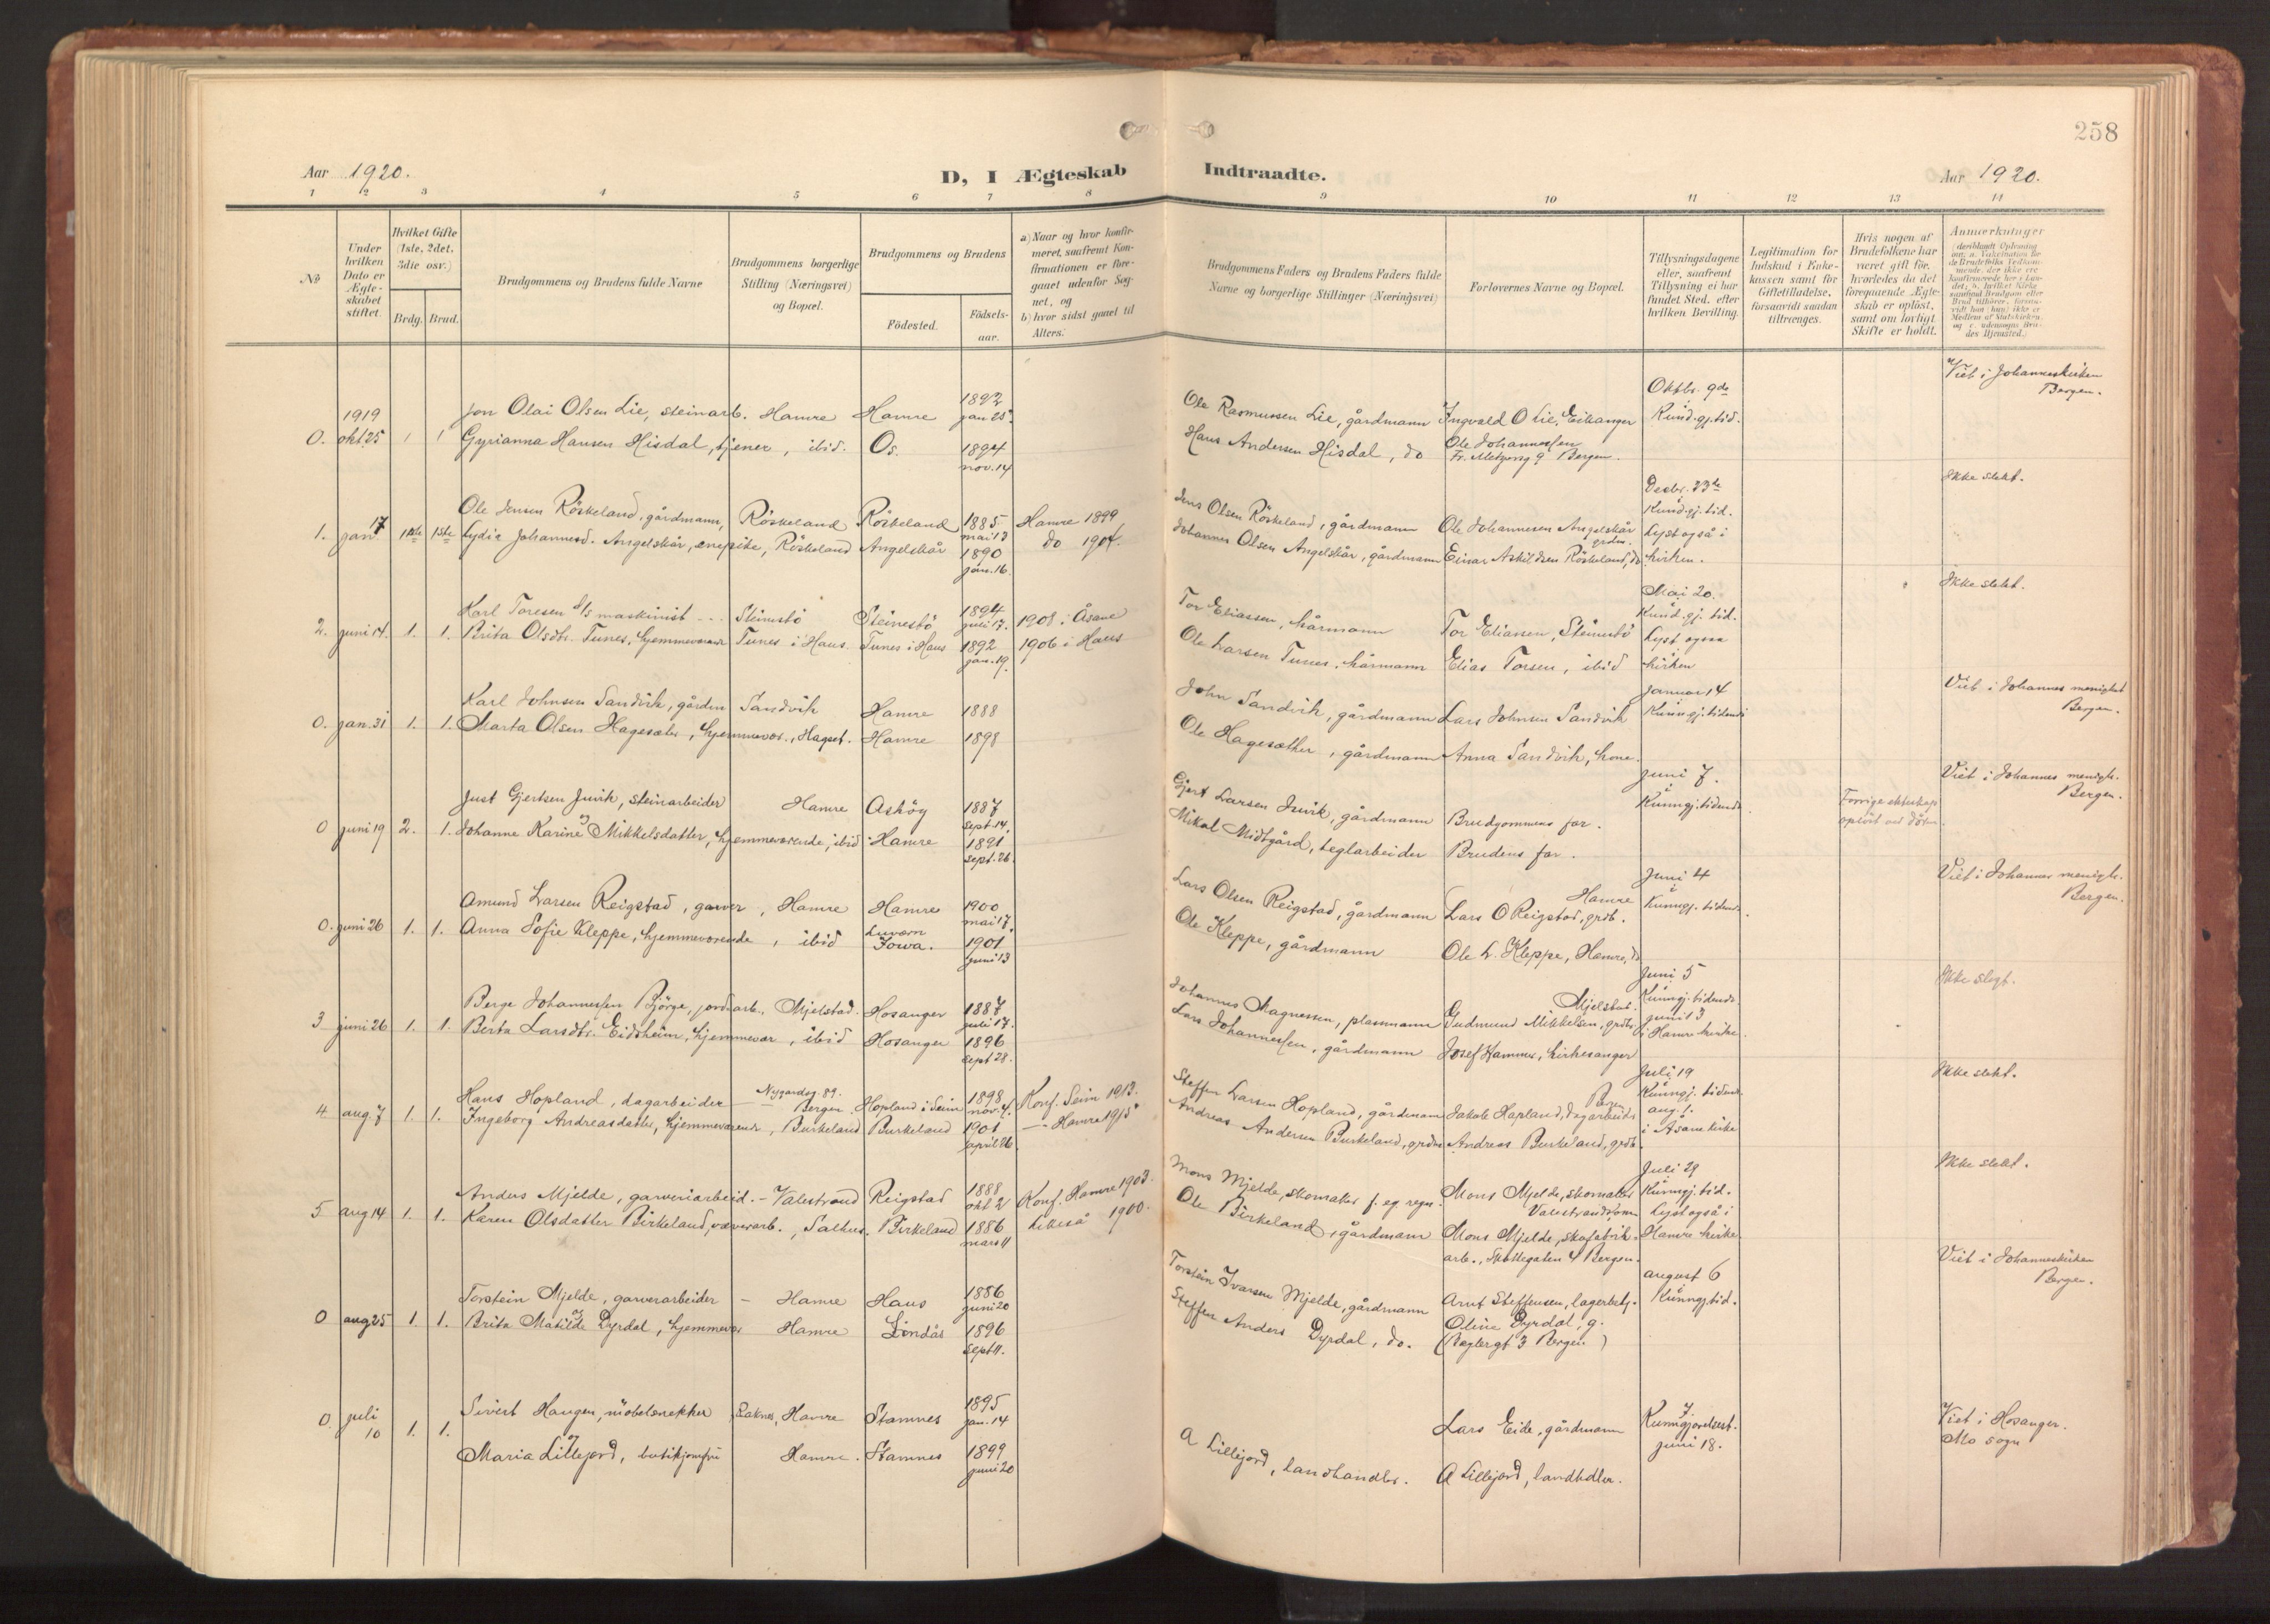 258
Aar 1920.
D, I Ægteskab Indtraadte.
Aar 1920.
1 2 3 4 5 6 7 8 9 10 11 12 13 14
№
Under hvilken Dato er Ægteskabet stiftet.
Hvilket Gifte (1ste, 2det, 3die osv.)
Brdg. Brud.
Brudgommens og Brudens fulde Navne
Brudgommens borgerlige Stilling (Næringsvei) og Bopæl.
Brudgommens og Brudens
Fødested.
Fødselsaar.
a) Naar og hvor konfirmeret, saafremt Konfirmationen er foregaaet udenfor Sognet, og
b) hvor sidst gaaet til Alters.
Brudgommens Faders og Brudens Faders fulde Navne og borgerlige Stillinger (Næringsvei)
Forlovernes Navne og Bopæl.
Tillysningsdagene eller, saafremt Tillysning ei har fundet Sted, efter hvilken Bevilling.
Legitimation for Indskud i Enkekassen samt for Giftetilladelse, forsaavidt saadan tiltrænges.
Hvis nogen af Brudefolkene har været gift før, hvorledes da det foregaaende Ægteskab er opløst, samt om lovligt Skifte er holdt.
Anmærkninger
1919
0. okt 25 1 1
Jon Olai Olsen Lie, steinarb. Hamre Hamre 1892 jan 25.
Gyrianna Hansen Hisdal, tjener, ibid. Os. 1894 nov. 14
Ole Rasmussen Lie, gårdmann Ingvald O Lie, Eikanger
Hans Andersen Hisdal, do Ole Johannessen
Bergen.
Oktbr. 9de
Kund.gj.tid.
Viet i Johanneskirken
Bergen.
1. jan 17 1ste 1ste
Ole Jensen Röskeland, gårdmann, Röskeland Röskeland 1885 mai 13 Hamre 1899
Lydia Johannesd. Angelskår, enepike, Röskeland Angelskår 1890 jan. 16 do 1904.
Jens Olsen Röskeland, gårdmann Ole Johannesen Angelskår grdm.
Johannes Olsen Angelskår, gårdmann Einar Askildsen Röskeland, do
Desbr. 23de
Kund.gj.tid.
Lyst også i
kirken.
Ikke slekt.
2. juni 14. 1. 1.
Karl Toresen d/s maskinist Steinestö Steinestö 1894 juli 17. 1908 i Åsane
Brita Olsdtr. Tunes, hjemmeværende Tunes i Haus. Tunes i Haus 1892 jan. 19. 1906 i Haus
Tor Eliassen, kårmann Tor Eliassen, Steinestö
Ole Larsen Tunes, kårmann Elias Torsen, ibid
Mai 20.
Kund.gj.tid.
Lyst ogsaa
kirken
Ikke slekt.
0. jan. 31 1. 1.
Karl Johnsen Sandvik, gårdm Sandvik Hamre 1888
Marta Olsen Hagesæter, hjemmevær., Hagset. Hamre 1898
John Sandvik, gårdmann Lars Johnsen Sandvik
Ole Hagesæther, gårdmann Anna Sandvik, kone.
Januar 14
Kunngj.tidende
Viet i Johannes menighet
Bergen.
0 juni 19 2. 1.
Just Gjertsen Juvik, steinarbeider Hamre Asköy 1887 Sept. 14.
og
Johanne Karine Mikkelsdatter, hjemmeværende, ibid Hamre 1891 Sept. 26.
Gjert Larsen Juvik, gårdmann Brudgommens far.
Mikal Midtgård, teglarbeider Brudens far.
Juni 7.
Kunngj.tidende
Forrige ekteskap
oplöst ved döden
Viet i Johannes menigh.
Bergen.
0. juni 26 1. 1.
Amund Larsen Reigstad, garver, Hamre Hamre 1900 mai 17.
Anna Sofie Kleppe, hjemmeværende, ibid Luvern Iowa. 1901 juni 13
Lars Olsen Reigstad, gårdmann Lars O Reigstad, grdb. Hamre
Ole Kleppe, gårdmann Ole L. Kleppe, Hamre, do
Juni 4
Kunngj. tidende.
Viet i Johannes menigh.
Bergen.
3 juni 26 1. 1.
Berge Johannessen Björge, jordarb., Mjelstad. Hosanger 1887 juli 17.
Berta Larsdtr. Eidsheim, hjemmevær, ibid Hosanger 1896 Sept 28.
Johannes Magnessen, plassmann Gudmund Mikkelsen, grdbr. Mjelstad.
Lars Johannessen, gårdmann Josef Hammer, kirkesanger
Juni 5
Kunngj.tidende.
juni 13
i Hamre kirke.
Ikke slegt.
4 aug. 7 1. 1.
Hans Hopland, dagarbeider — Nygårdsg. 89. Bergen. Hopland i Seim 1898 nov. 4. Konf. Seim 1913.
Ingeborg Andreasdatter, hjemmeværende, Burkeland Burkeland 1901 april 26. — Hamre 1915
Steffen Larsen Hopland, gårdmann Jakob Hopland, dagarbeider Bergen
Andreas Andersen Burkeland, grdm Andreas Burkeland, grdb.
Juli 19
Kunngj. tidende
aug. 1.
i Åsane kirke
Ikke slekt.
5 aug 14 1. 1.
Anders Mjelde, garveriarbeid. - Valestrand Reigstad 1888 okt 2 Konf. Hamre 1903.
Karen Olsdatter Birkeland, væverarb., Salhus. Birkeland 1886 mars 11 likeså 1900.
Mons Mjelde, skomaker f. eg. regn. Mons Mjelde, skomaker
Valestrandsfossen
Ole Birkeland, gårdmann Mons Mjelde, skofabrik-
arb., Skottegaten 4 Bergen.
Juli 29
Kunngj.tid.
Lyst også i
Hamre kirke.
Ikke slekt.
0 aug 25 1. 1.
Torstein Mjelde, garverarbeider - Hamre Haus 1886 juni 20
og
Brita Matilde Dyrdal, hjemmevær Hamre Lindås 1896 Sept 11.
Torstein Ivarsen Mjelde, gårdmann Arnt Steffensen, lagerbetj.
Steffen Anders Dyrdal, do. Oline Dyrdal, g.
3 Bergen)
august 6
Kunngj.tid.
Viet i Johanneskirken
Bergen.
0. juli 10 1. 1.
Sivert Haugen, möbelsnekker, Eaknes, Hamre Stamnes 1895 jan. 14
og
Maria Lillejord, butikjomfru Hamre. Stamnes 1899 juni 20
Lars Eide, gårdmann
A Lillejord, landhandler. A Lillejord, landhdler.
Kunngjørelsest.
juni 18.
Viet i Hosanger.
Mo sogn